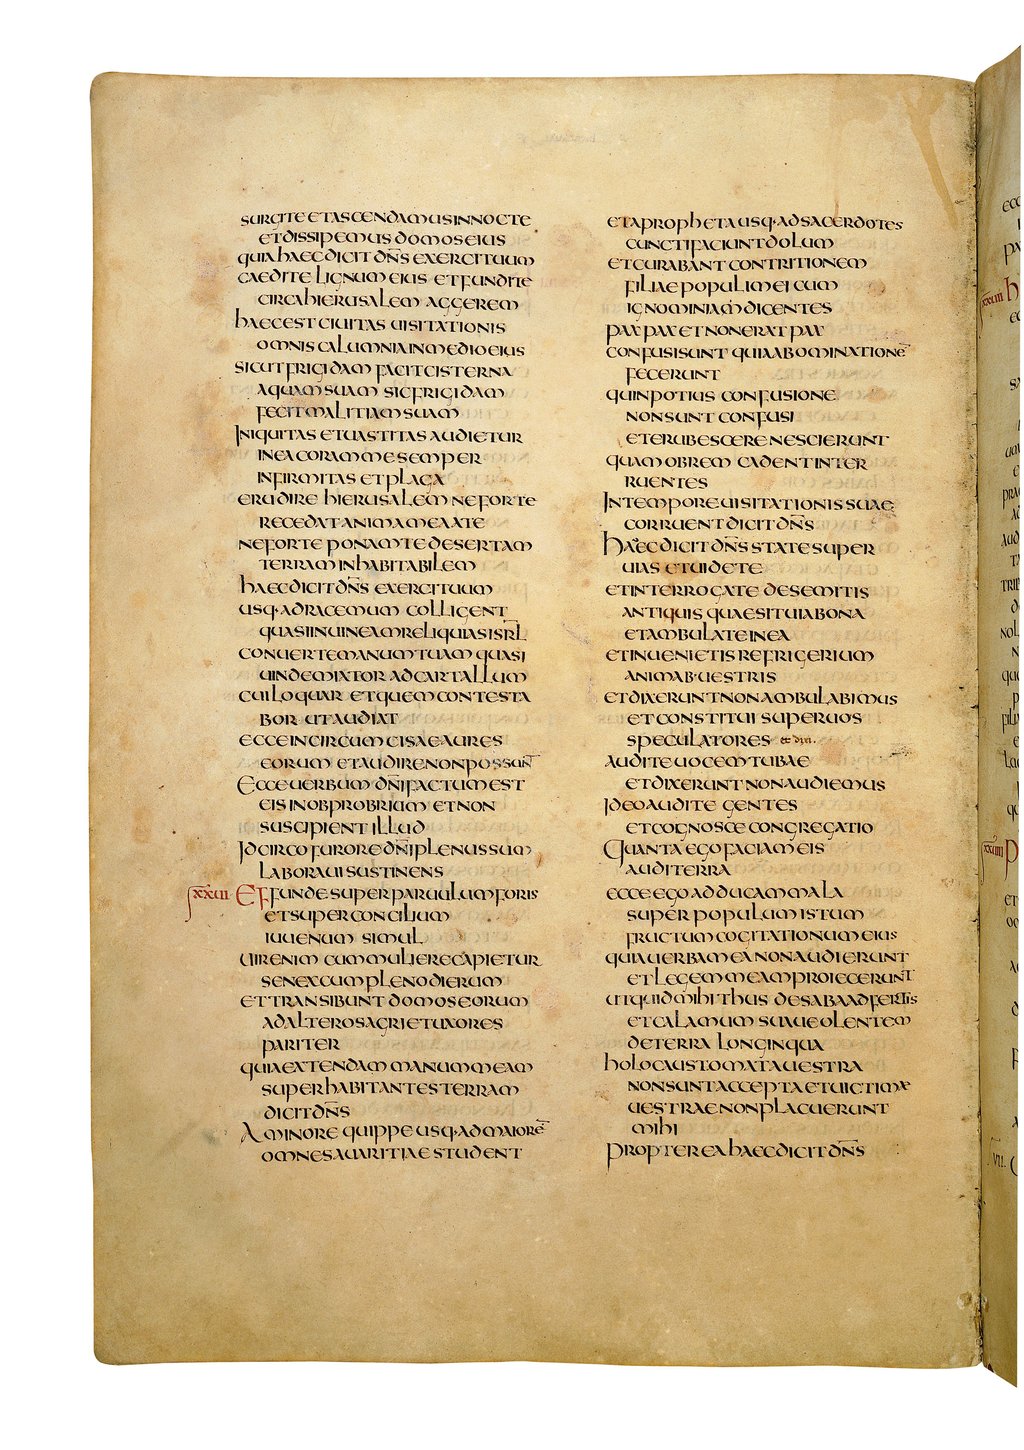 surgite et ascendamus in nocte
et dissipemus domos eius
quia haec dicit dn̄s exercituum
caedite lignum eius et fundite
circa hierusalem aggerem
haec est ciuitas uisitationis
omnis calumnia in medio eius
sicut frigidam facit cisterna
aquam suam sic frigidam
fecit malitiam suam
Iniquitas et uastitas audietur
in ea coram me semper
infirmitas et plaga
erudire hierusalem ne forte
recedat anima mea a te
ne forte ponam te desertam
terram inhabitabilem
haec dicit dn̄s exercituum
usq· ad racemum colligent
quasi in uinea m reliquias isrl̄
conuerte manum tuam quasi
uindemiator ad cartallum
cui loquar et quem contesta
bor ut audiat
ecce incircumcisae aures
eorum et audire non possunt
Ecce uerbum dn̄i factum est
eis in obprobrium et non
suscipient illud
Idcirco furore dn̄i plenus sum
laboraui sustinens
xxxuii· Effunde super paruulum foris
et super concilium
iuuenum simul
uir enim cum muliere capietur
senex cum pleno dierum
et transibunt domos eorum
ad alteros agri et uxores
pariter
quia extendam manum meam
super habitantes terram
dicit dn̄s
A minore quippe usq· ad maiorē
omnes auaritiae student
et a propheta usq· ad sacerdotes
cuncti faciunt dolum
et curabant contritionem
filiae populi mei cum
ignominia dicentes
pax pax et non erat pax
confusi sunt quia abominationē
fecerunt
quin potius confusione
non sunt confusi
et erubescere nescierunt
quam obrem cadent inter
ruentes
In tempore uisitationis suae
corruent dicit dn̄s
Haec dicit dn̄s state super
uias et uidete
et interrogate de semitis
antiquis quae sit uia bona
et ambulate in ea
et inuenietis refrigerium
animab· uestris
et dixerunt non ambulabimus
et constitui super uos
speculatores et dixi.
Audite uocem tubae
et dixerunt non audiemus
Ideo audite gentes
et cognosce congregatio
Quanta ego faciam eis
audi terra
ecce ego adducam mala
super populum istum
fructum cogitationum eius
quia uerba mea non audierunt
et legem meam proiecerunt
ut quid mihi thus de saba adfertis
et calamum suaue olentem
de terra longinqua
holocaustomata uestra
non sunt accepta et uictimae
uestrae non placuerunt
mihi
Propterea haec dicit dn̄s